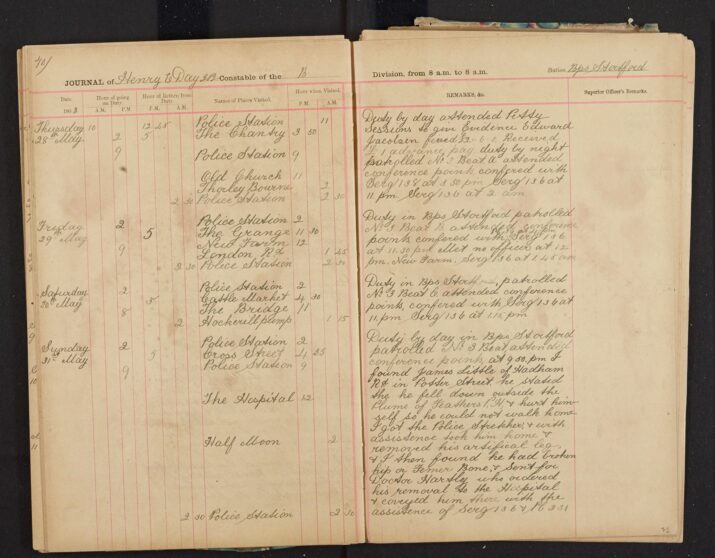 JOURNAL of Henry E Day Constable of the B
Date
Hour of going on Duty
Hour of Return from Duty
Names of Places Visited.
Hour when Visited.
A.M. P.M. P.M. A.M. P.M. A.M.
Thursday 10 12 45 Police Station 11
28th May 2 5 The Chantry 3 50
9 Police Station 9
Old Church 11
Thorley Bourne 2
2 30 Police Station 2 30
Friday 2 Police Station 2
29th May 5 The Grange 11 30
9 New Farm 12
London Rd 1 45
2 30 Police Station 2 30
Saturday 2 Police Station 2
30th May 5 Cattle Market 4 30
8 The Bridge 11
2 Hockerill pump 1 15
Sunday 2 Police Station 2
31st May 5 Cross Street 4 25
9 Police Station 9
The Hospital 12
Half Moon 2
2 30 Police Station 2 30
Division, from 8 a.m. to 8 a.m.
Station Bps Stortford
REMARKS, &c.
Superior Officer's Remarks.
Duty by day attended Petty
Sessions to give Evidence Edward
Jacobsen fined Received
£1 advance pay duty by night
patrolled No 2 Beat A attended
conference points confered with
Serg 138 at 3.50 pm Serg 136 at
11 pm Serg 136 at 2 am
Duty in Bps Stortford patrolled
No 3 Beat B attended conference
points confered with Serg 136
at 11.30 pm Met no officer at 12
pm New Farm. Serg 136 at 1.45 am
Duty in Bps Stortford, patrolled
No 3 Beat C attended conference
points confered with Serg 136 at
11 pm Serg 136 at 1.15 pm
Duty by day in Bps Stortford
patrolled No 3 Beat attended
conference points at 9.50 pm I
found James Little of Hadham
Rd in Potter Street, he stated
that he fell down outside the
Plume of Feathers P.H. & hurt him-
self so he could not walk home
I got the Police Stretcher, & with
assistence took him home &
removed his artifical leg
& I then found he had broken
hip or Femur Bone, & sent for
Doctor Hartly who ordered
his removal to the Hospital
& conveyed him there with the
assistence of Serg 136 & P.C 331